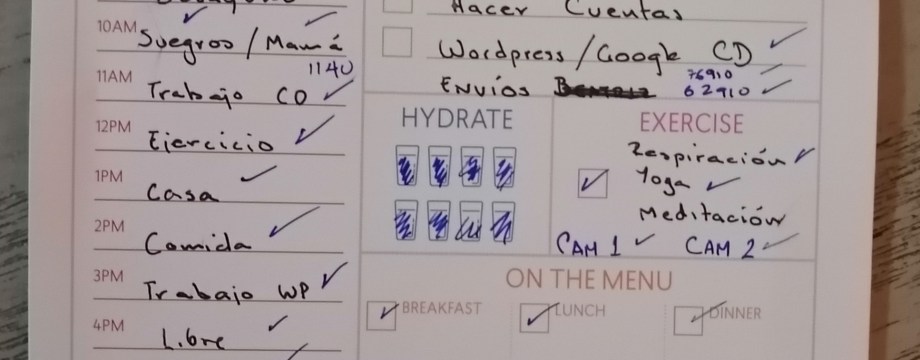 10AM Suegros / Mamá
1140
11AM Trabajo CD
12PM Ejercicio
1PM Casa
2PM Comida
3PM Trabajo WP
4PM Libre
Hacer Cuentas
Wordpress / Google CD
76910
Envíos 62910
HYDRATE
EXERCISE
Respiración
Yoga
Meditación
CAM 1 CAM 2
ON THE MENU
BREAKFAST LUNCH DINNER